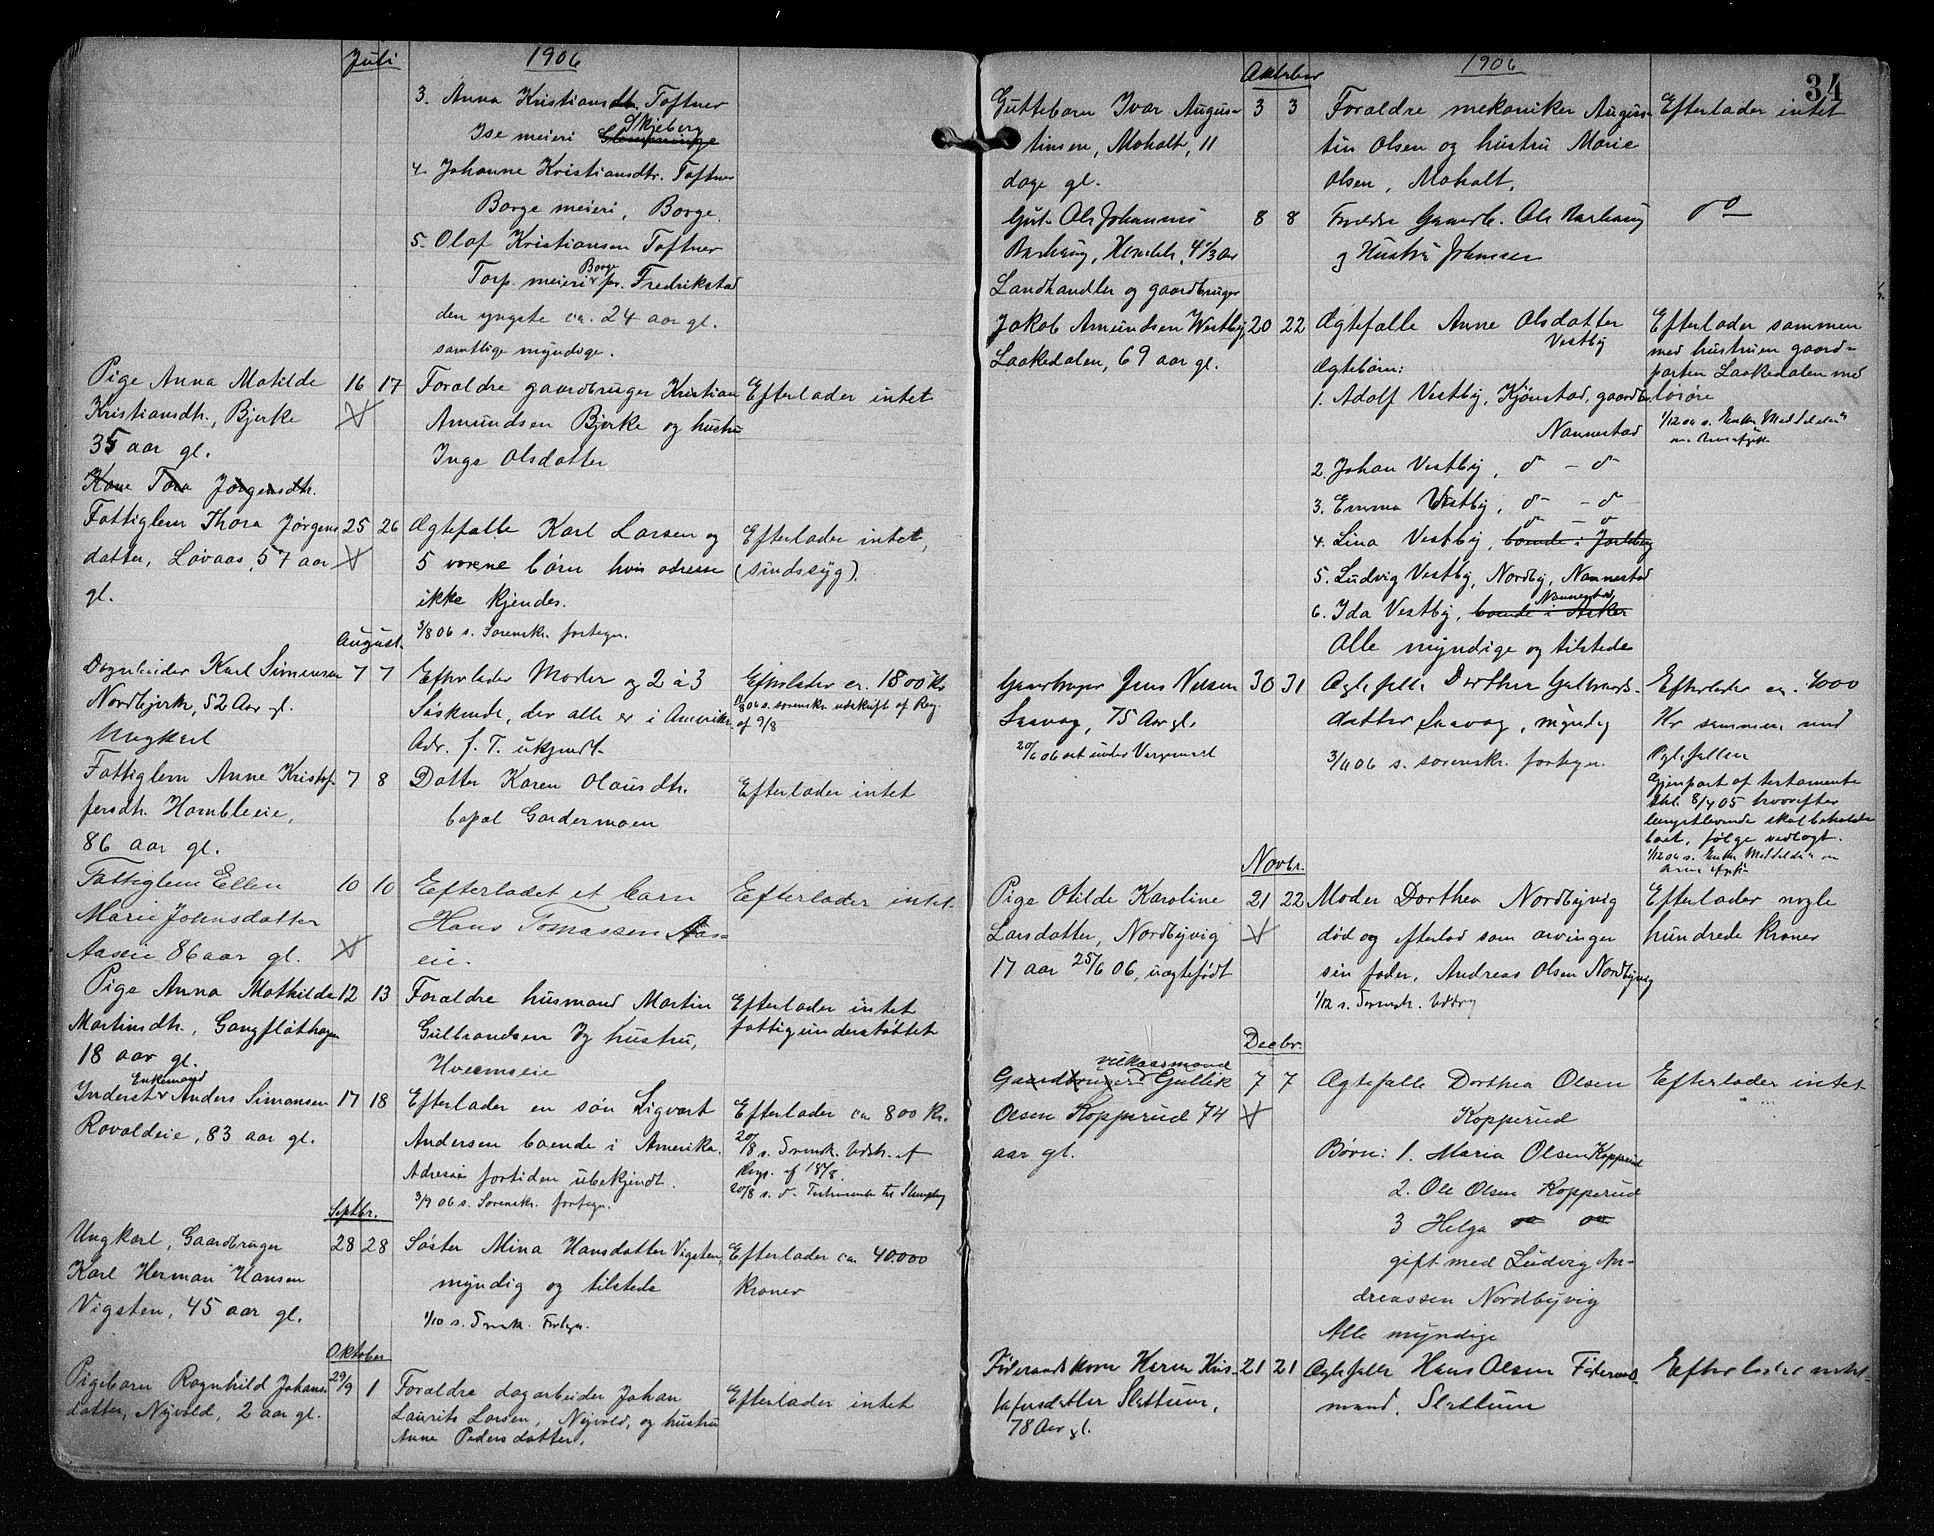 Juli
1906
3. Anna Kristiansdtr. Toftner
Ise meieri Skjeberg
4. Johanne Kristiansdtr. Toftner
Borge meieri, Borge.
5. Olaf Kristiansen Toftner
Torp meieri Borge pr. Fredrikstad
den yngste ca. 24 aar gl.
samtlige myndige.
Pige Anna Matilde
Kristiansdtr., Bjerke
35 aar gl.
16 17
Foræeldre gaardbruger Kristian
Amundsen Bjerke og hustru
Inge Olsdatter
Efterlader intet
Kone Tora Jørgensdtr.
Fattiglem Thora Jørgens
datter, Løvaas, 57 aar
gl.
25 26
Ægtefælle Karl Larsen og
5 voxne børn hvis adresse
ikke kjendes.
3/8 06 s. Sorenskr. fortegn.
Efterlader intet,
(sindssyg).
August
Dagarbeider Karl Simensen
Nordbjerke, 52 Aar gl.
Ungkarl
7 7
Efterlader Moder og 2 à 3
Søskende, der alle er i Amerika
Adr. f. T. ukjendt
Efterlader ca. 1800 Kr
s. sorenskr. udskrift af Reg.
af 9/8
Fattiglem Anne Kristof
fersdtr. Hambleie,
86 aar gl.
7 8
Datter Karen Olausdtr.
bopæl Gardermoen
Efterlader intet
Fattiglem Ellen
Marie Johnsdatter
Aaseie 86 aar gl.
10 10
Efterladet et barn
Hans Tomassen Aas-
eie.
Efterlader intet
Pige Anna Mathilde
Martinsdtr., Gangfløthagen
18 aar gl.
12 13
Forældre husmand Martin
Gulbrandsen og hustru,
Hvermseie
Efterlader intet
fattigunderstøttet
Enkemand
Inderst Anders Simensen
Rovoldeie, 83 aar gl.
17 18
Efterlader en søn Sigvart
Andersen boende i Amerika.
Adresse fortiden ubekjendt.
3/9 06 s. Sorenskr. fortegn.
Efterlader ca 800 Kr.
20/8 s. Sorenskr. Udskr. af
Reg. af 18/8.
20/8 s. d. Testamente til
Septbr.
Ungkarl, Gaardbruger
Karl Herman Hansen
Vigsten, 45 aar gl.
28 28
Søster Mina Hansdatter Vigsten,
myndig og tilstede
1/10 s. Sorenskr. Fortegn.
Efterlader ca 40.000
kroner
Oktober
Pigebarn Ragnhild Johans
datter, Nyvold, 2 aar gl.
29/9 1
Forældre dagarbeider Johan
Laurits Larsen, Nyvold, og hustru
Anne Pedersdatter.
Efterlader intet
Oktober
1906
34
Guttebarn Ivar Augus-
tinsen, Moholt, 11
dage gl.
3 3
Forældre mekaniker Augus-
tin Olsen og hustru Marie
Olsen, Moholt.
Efterlader intet
Gut Ole Johannes
4 1/3 Aar
8 8
Forældre Gaardb. Ole
og Hustru
do
Landhandler og gaardbruger
Jakob Amundsen Vestby,
Laakedalen, 69 aar gl.
20 22
Ægtefælle Anne Olsdatter
Vestby
Ægtebørn:
1. Adolf Vestby, Kjønstad, gaardbr.
Nannestad
2. Johan Vestby, do - do
3. Emma Vestby, do - do
do - do
4. Lina Vestby, boende i Jarlsberg
5. Ludvig Vestby, Nordby, Nannestad
Nannestad
6. Ida Vestby, boende i Asker
Alle myndige og tilstede
Efterlader sammen
med hustruen gaard-
parten Laakedalen med
løsøre
Gaardbruger Jens Nilsen
75 Aar gl.
30 31
Ægtefælle Dorthea Gulbrands-
datter, myndig
3/11 06 s. sorenskr. fortegn.
Efterlader ca. 4000
Kr sammen med
Ægtefællen
Gjenpart af testamente
dat. 8/4 05 hvorefter
længstlevende skal beholde
boet, følge vedlagt.
Novbr.
Pige Otilde Karoline
Larsdatter, Nordbyvig
17 aar 25/6 06, uægtefødt
21 22
Moder Dorthea Nordbyvig
død og efterlod som arvinger
sin fader, Andreas Olsen Nordbyvig
1/12 s. Sorenskr. Uddrag
Efterlader nogle
hundrede kroner
Decbr.
vilkaarsmand
Gaardbruger Gullik
Olsen Kopperud 74
aar gl.
7 7
Ægtefælle Dorthea Olsen
Kopperud
Børn: 1. Maria Olsen Kopperud
2. Ole Olsen Kopperud
3 Helga do do
gift med Ludvig An-
dreassen Nordbyvig
Alle myndige
Efterlader intet
Føderaadskone Karen Kris-
tofersdatter Slettum,
78 Aar gl.
21 21
Ægtefælle Hans Olsen Føderaads-
mand, Slettum
Efterlader intet